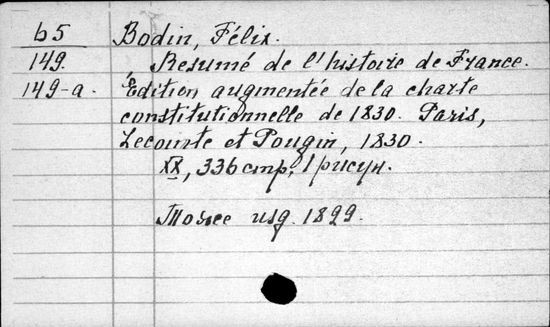 65 Bodin, Félix.
149. Resumé de l'histoire de France.
149-a. Édition augmentée de la charte
constitutionnelle de 1830. Paris,
Lecointe et Pougin, 1830.
XX, 336 стр., 1 рисун.
Тоже изд. 1829.